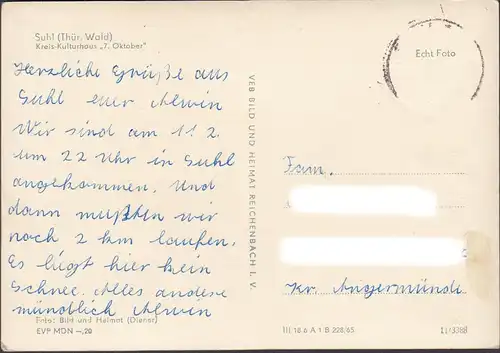 Suhl (Thür. Wald)
Kreis-Kulturhaus „7. Oktober"
Herzliche Grüße aus
Suhl euer Alwin
Wir sind am 11.2.
um 22 Uhr in Suhl
angekommen. Und
dann mußten wir
noch 2 km laufen.
Es liegt hier kein
Schnee. Alles andere
mündlich Alwin
Foto: Bild und Heimat (Dienar)
EVP MDN —,20
VEB BILD UND HEIMAT REICHENBACH I. V.
Echt Foto
Fam.
Kr. Angermünde
III 18 6 A 1 B 228/65